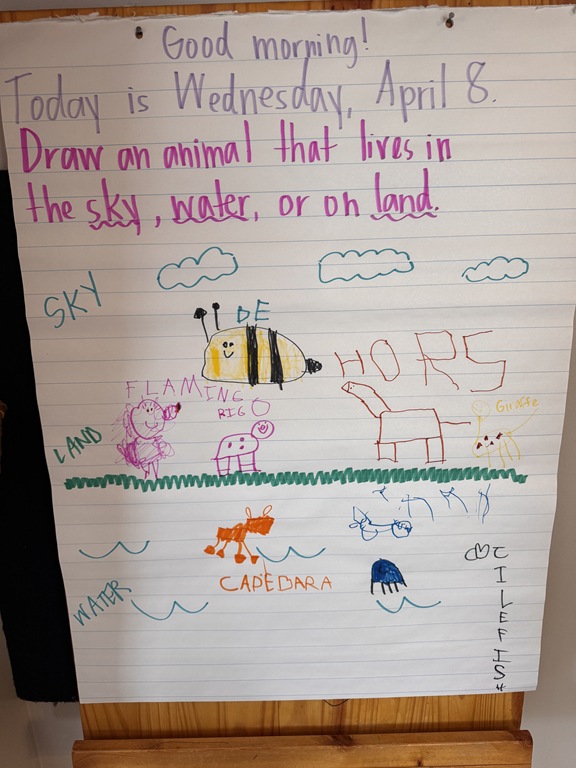 Good morning!
Today is Wednesday, April 8.
Draw an animal that lives in
the sky, water, or on land.
SKY
BE
HORS
FLAMINGO
BIG
Giraffe
LAND
CAPEBARA
WATER
TILEFISH